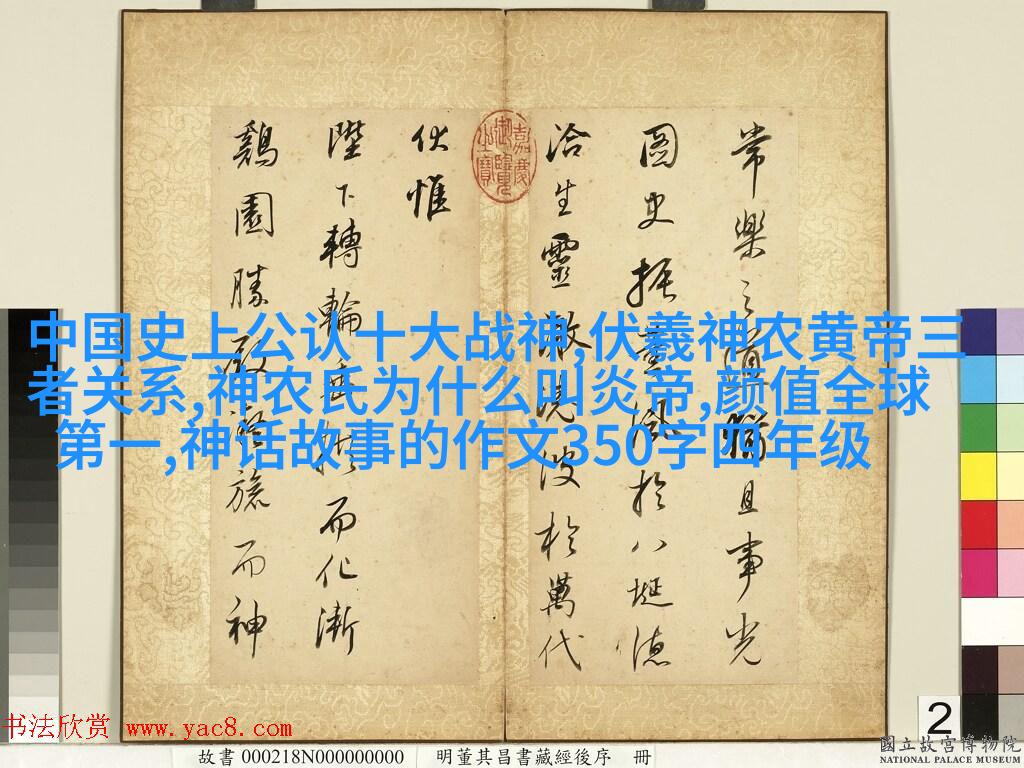 常樂之且事光
圖史振靈風於八埏德
洽生靈激澆波於萬代
伏惟
陛下轉輪垂拱而化漸
鷄園勝殿凝旒而神
嘉慶御覽之寶
中国史上公认十大战神,伏羲神农黄帝三
者关系,神农氏为什么叫炎帝,颜值全球
第一,神话故事的作文350字四年级
2
书法欣赏 www.yac8.com
故書 000218N000000000 明董其昌書藏經後序 冊
國立故宮博物院
NATIONAL PALACE MUSEUM